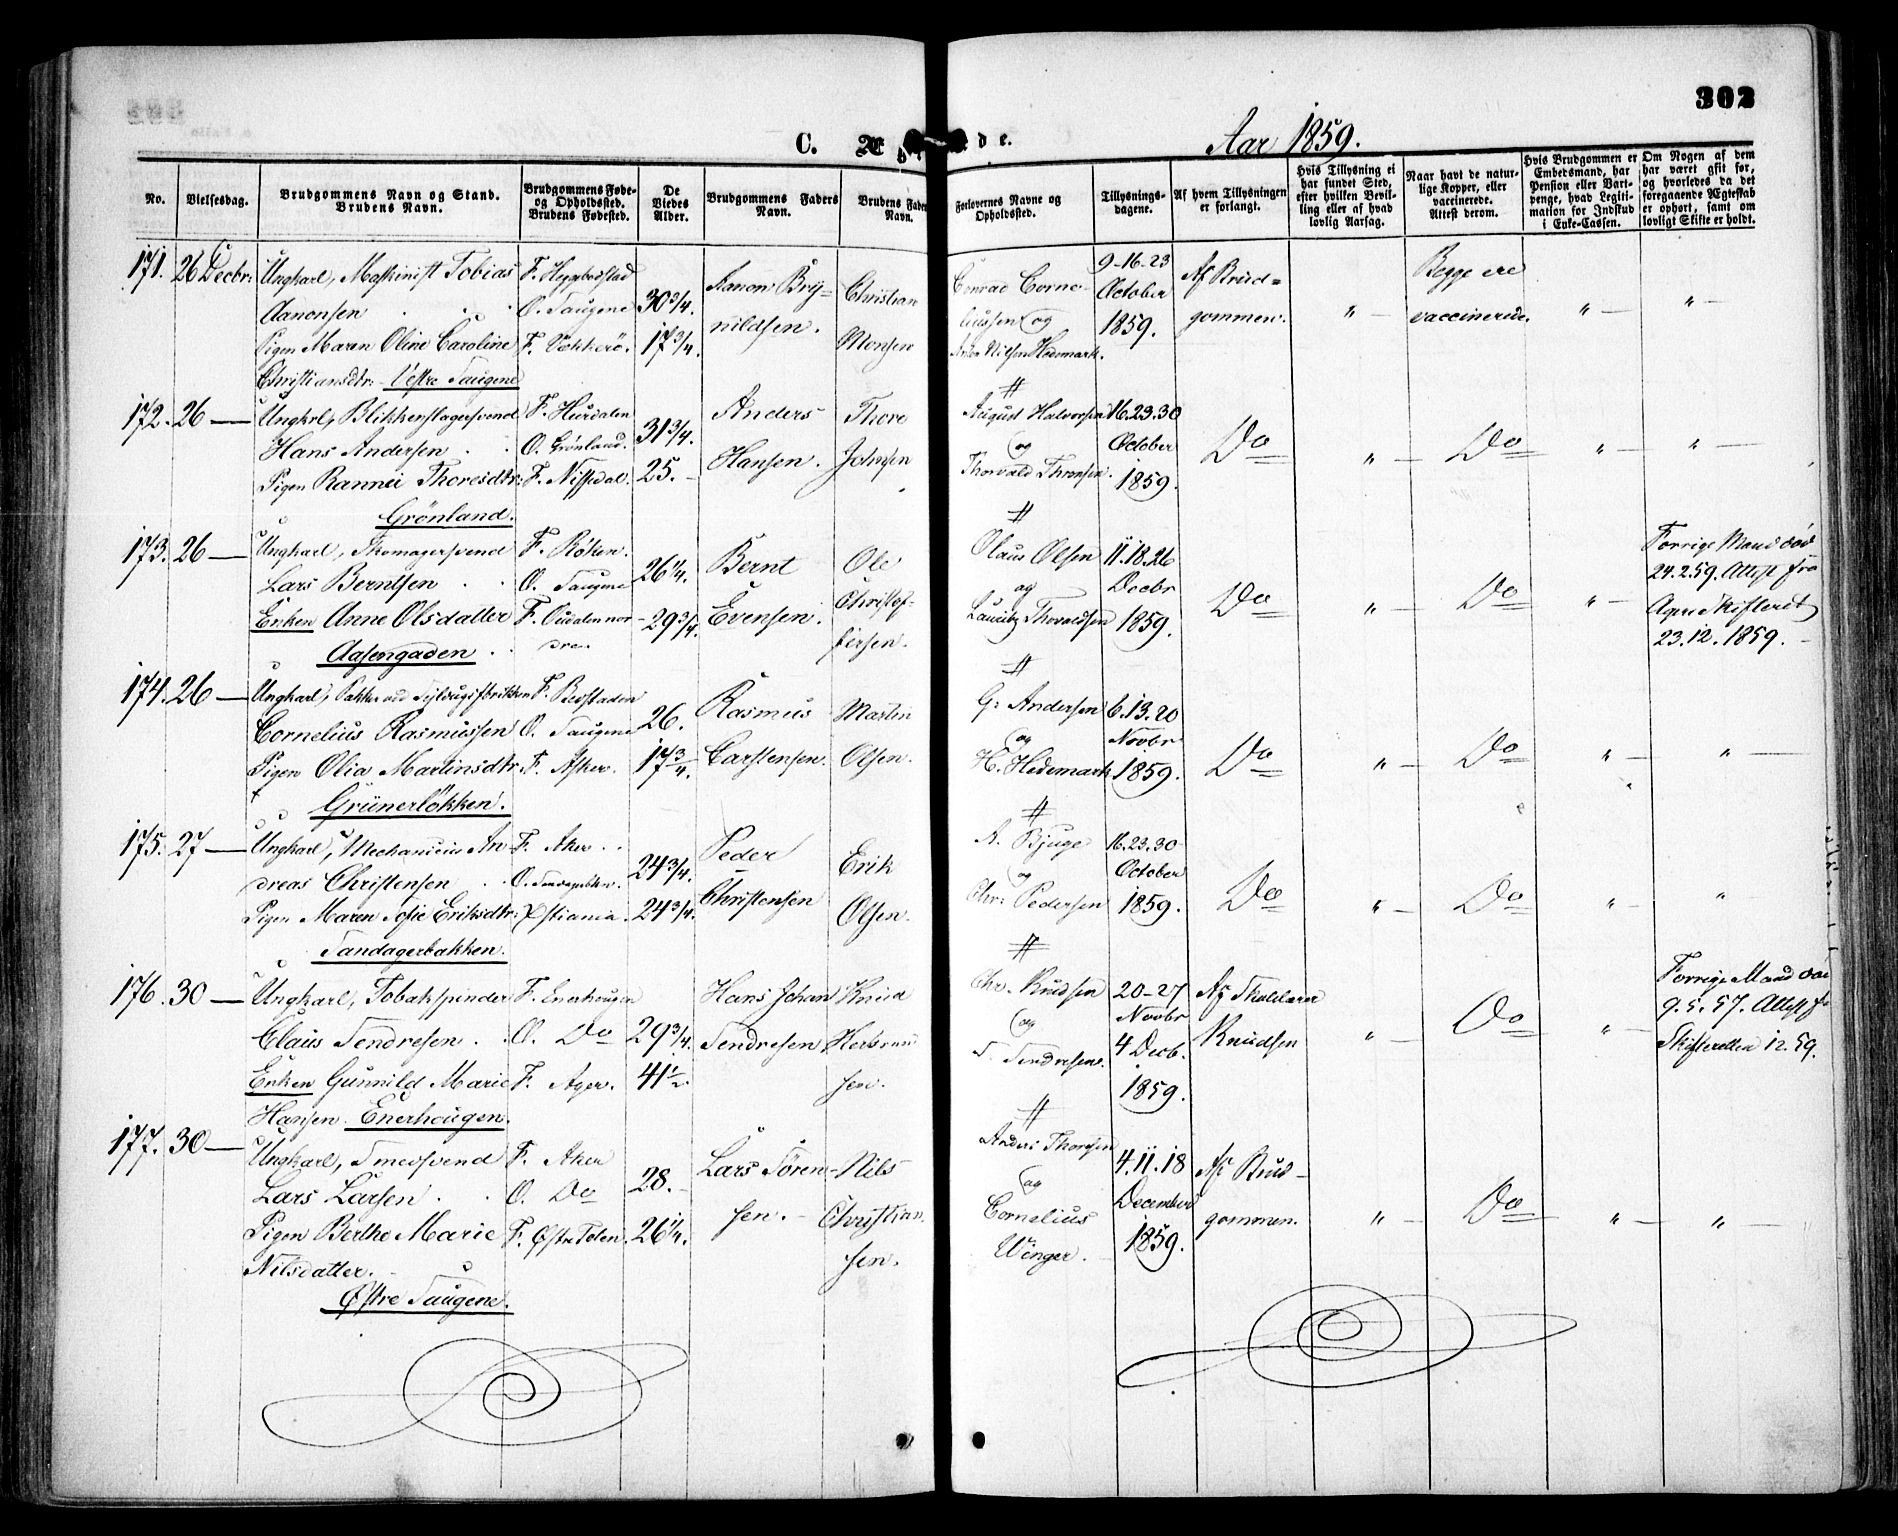 302
C. Aar 1859.
No.
Vielsesdag.
Brudgommens Navn og Stand.
Brudens Navn.
Brudgommens Føde-
og Opholdssted.
Brudens Fødested.
De
Viedes
Alder.
Brudgommens Faders
Navn.
Brudens Faders
Navn.
Forlovernes Navne og
Opholdssted.
Tillysnings-
dagene.
Af hvem Tillysningen
er forlangt.
Hvis Tillysning ei
har fundet Sted,
efter hvilken Bevil-
ling eller af hvad
lovlig Aarsag.
Naar havt de natur-
lige Kopper, eller
vaccinerede.
Attest derom.
Hvis Brudgommen er
Embedsmand, har
Pension eller Vart-
penge, hvad Legiti-
mation for Indskud
i Enke-Cassen.
Om Nogen af dem
har været gift før,
og hvorledes da det
foregaaende Ægteskab
er ophørt, samt om
lovligt Skifte er holdt.
171. 26 Decbr:
Ungkarl, Maskinist Tobias
Aanonsen
Pigen Maren Oline Caroline
Christiansdtr: Vestre Saugene
F. Heggbostad
O. Saugene
F. Vækkerö.
30 3/4.
17 3/4.
Aanon Bry=
nildsen.
Christian
Monsen
Conrad Corne-
liussen og
Nilsen Hedemark.
9-16-23
October
1859.
Af Brud=
gommen.
" —
Begge ere
vaccinerede.
" —
" —
172. 26 —
Ungkrl, Blikkenslagersvend
Hans Andersen
Pigen Rannei Thoresdtr:
Grönland.
F. Hurdalen
O. Grönland.
F. Nissedal.
31 3/4.
25.
Anders
Hansen.
Thore
Johnsen
August Halvorsen
og
Thorvald Thronsen.
16.23.30
October
1859.
Do
" —
Do
" —
" —
173. 26 —
Ungkarl, Skomagersvend
Lars Berntsen
Enken Anne Olsdatter
Aasengaden
F. Röken.
O. Saugene
F. Oudalen nor
dre.
26 1/4.
29 3/4.
Bernt
Evensen.
Ole
Christof-
fersen.
Olaus Olsen
og
Lauritz Thorvaldsen
11.18.26
Decbr
1859.
Do
" —
Do
" —
Forrige Mand död
24.2.59. Attest fra
Agers Skifteret
23.12.1859.
174. 26 —
Ungkarl, Pakker ved Seildugsfbrikken
Cornelius Rasmussen
Pigen Olia Martinsdtr:
Grünerløkken.
F. Bredstaden
O. Saugene
F. Asker.
26.
17 3/4.
Rasmus
Carstensen.
Martin
Olsen.
G: Andersen
og
H. Hedemark
6.13.20
Novbr
1859.
Do
" —
Do
" —
" —
175. 27 —
Ungkarl, Mechanicus An
dreas Christensen
Pigen Maren Sofie Eriksdtr:
Sandagerbakken.
F. Aker
O. Sandagerbkn.
Xstiania.
24 3/4.
24 3/4.
Peder
Christensen
Erik
Olsen.
A. Bjuge
og
Chr: Pedersen
16.23.30
October
1859.
Do
" —
Do
" —
"
176. 30 —
Ungkarl, Tobakspinder
Claus Sendresen
Enken Gunnild Marie
Hansen. Enerhaugen.
F. Enerhaugen
O. Do
F. Ager.
29 3/4.
41 1/2.
Hans Johan
Sendresen
Knud
Herbrand
sen.
Chr. Knudsen
og
S. Sendresen.
20-27
Novbr
4 Decb.
1859.
Af Skolelærer
Knudsen
" —
Do
" —
Forrige Mand död
9.5.57. Attest f
Skifteretten 12.59.
177. 30 —
Ungkarl, Smedsvend
Lars Larsen
Pigen Berthe Marie
Nilsdatter.
Østre Saugene.
F. Aker
O. Do
F. Østre Toten.
28.
26 1/4.
Lars Sören-
sen.
Nils
Christian
sen.
Anders Thoresen
og
Cornelius
Winger.
4.11.18
December
1859.
Af Brud-
gommen.
" —
Do
" —
" —